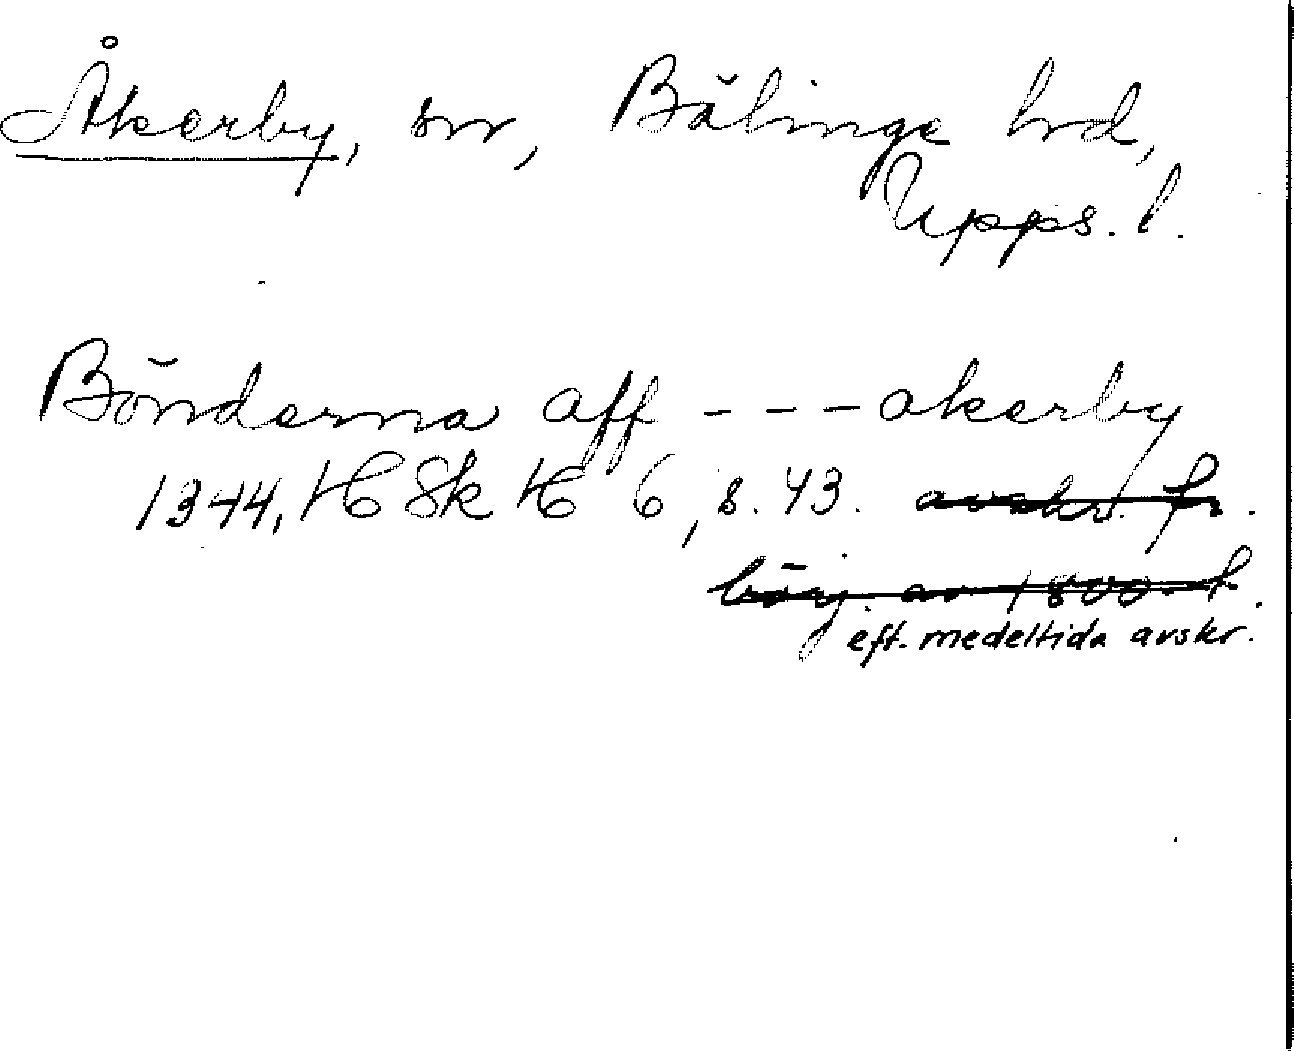 Åkerby, sn, Bälinge hrd,
Upps. l.
Bönderna aff --- akerby
1344, HSkH 6, s. 43. avskr. fr.
börj. av 1800-t.
eft. medeltida avskr.